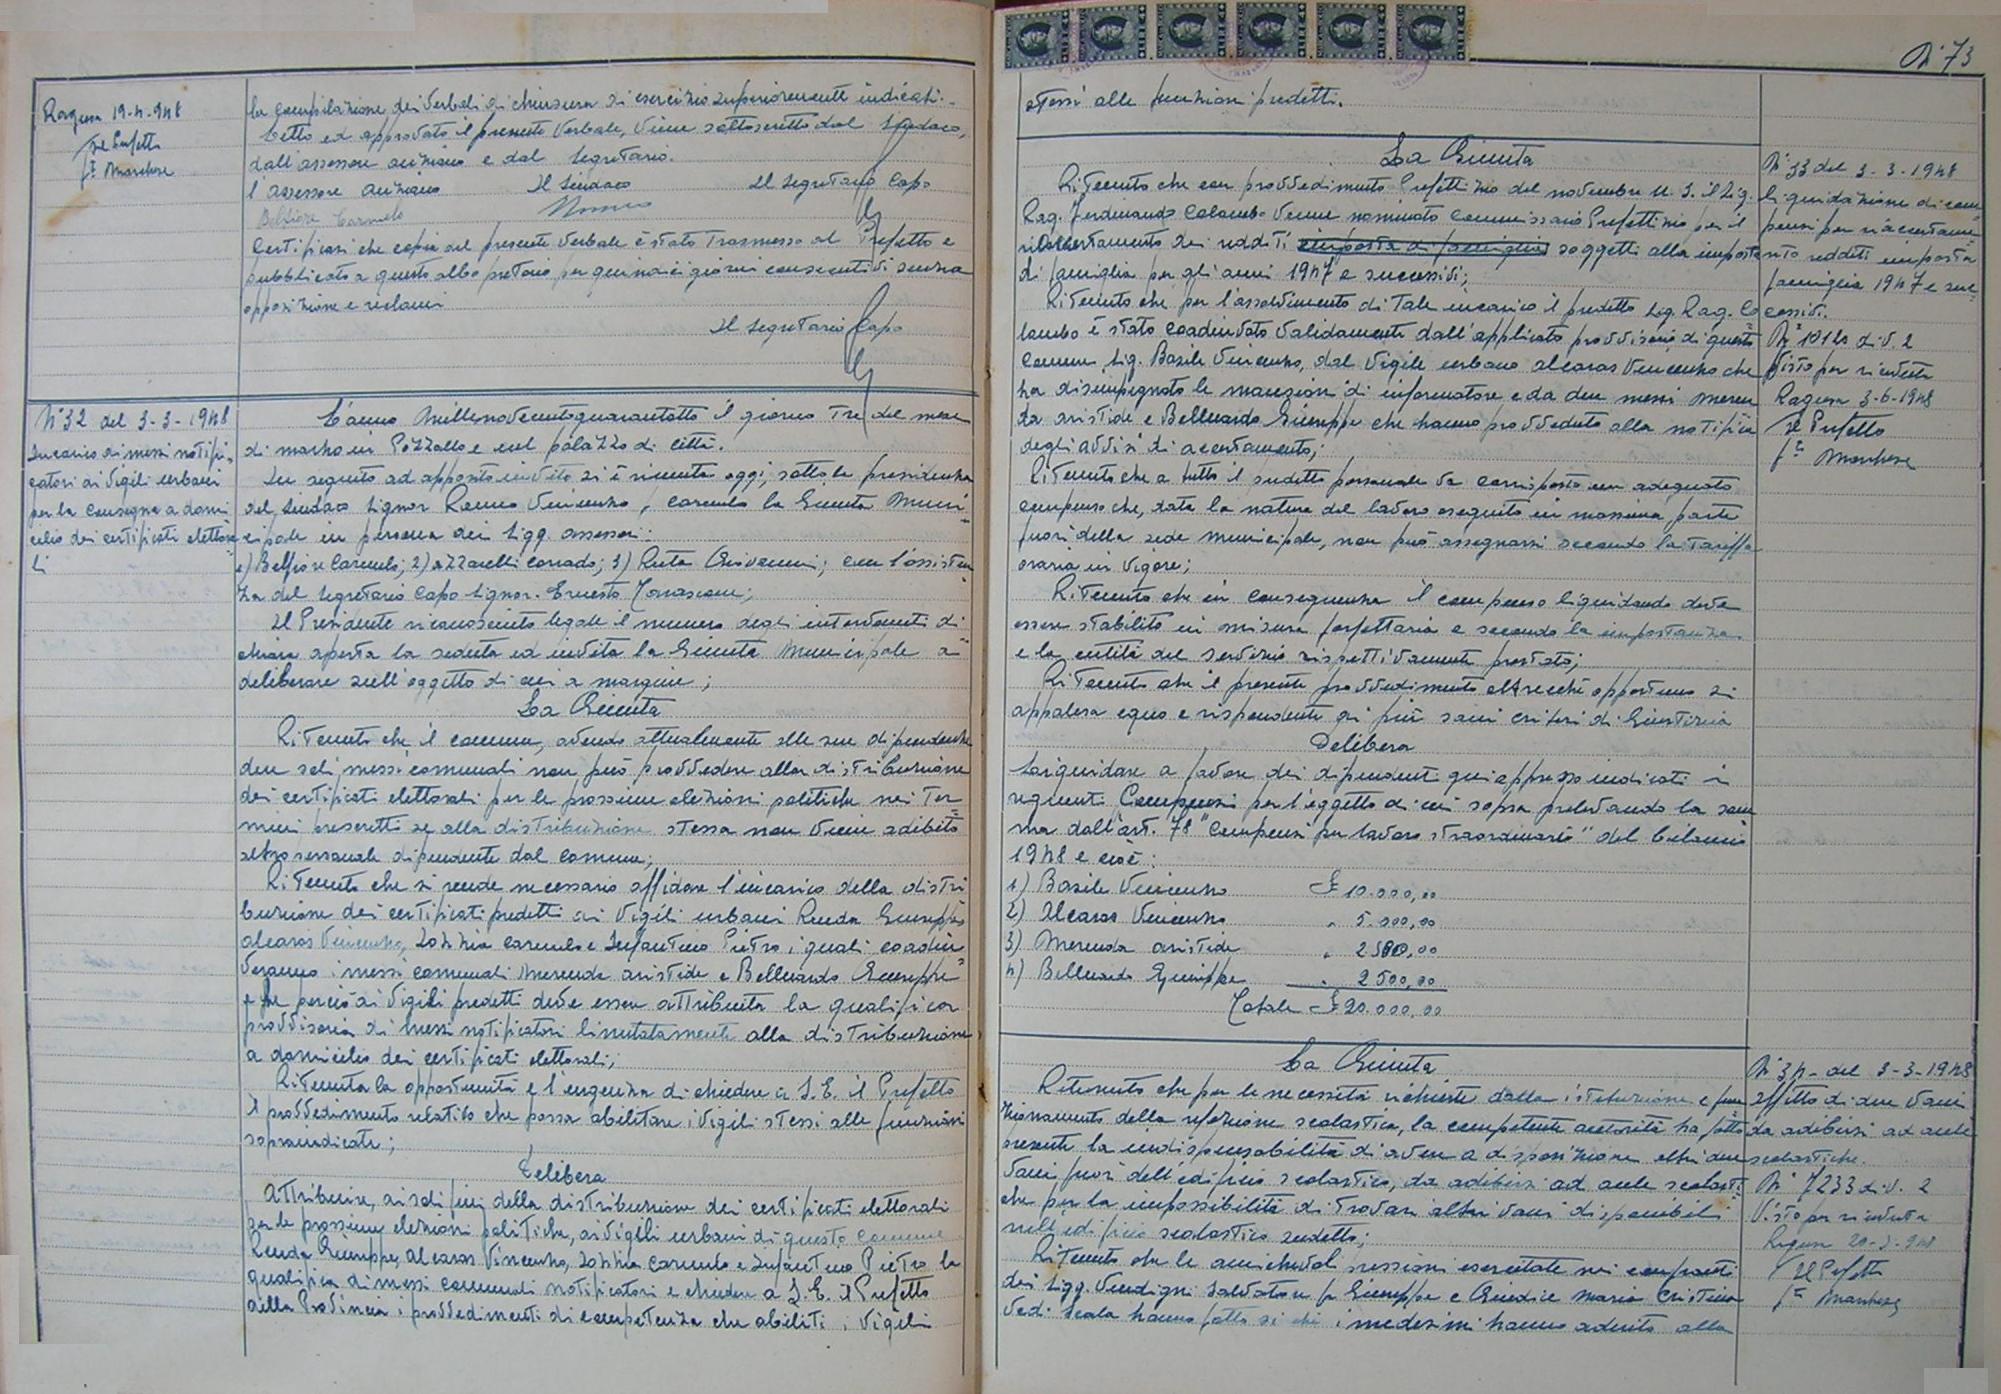 Ragusa 19-4-948
Il Prefetto
fto Marchese
la compilazione dei verbali di chiusura di esercizio superiormente indicati.-
Letto ed approvato il presente verbale, viene sottoscritto dal Sindaco,
dall'assessore anziano e dal Segretario.
l'assessore anziano Il Sindaco Il Segretario Capo
Belfiore Carmelo
Certificasi che copia del presente verbale è stato trasmesso al Prefetto e
pubblicato a questo albo pretorio per quindici giorni consecutivi senza
opposizione e reclami
Il Segretario Capo
N° 32 del 3-3-1948
Incarico di messi notifi-
catori ai vigili urbani
per la consegna a domi
cilio dei certificati elettora
li
L'anno millenovecentoquarantotto il giorno tre del mese
di marzo in Pozzallo e nel palazzo di città.
In seguito ad apposito invito si è riunita oggi, sotto la presidenza
del Sindaco Signor Vincenzo, la Giunta Muni-
cipale in persona dei Sigg. assessori:
1) Belfiore Carmelo; 2) Azzarelli Corrado; 3) Ruta Giovanni; con l'assisten
za del Segretario Capo Signor. Ernesto
Il Presidente riconosciuto legale il numero degli intervenuti di
chiara aperta la seduta ed invita la Giunta Municipale a
deliberare sull'oggetto di cui a margine;
La Giunta
Ritenuto che il comune, avendo attualmente alle sue dipendenze
due soli messi comunali non può provvedere alla distribuzione
dei certificati elettorali per le prossime elezioni politiche nei ter-
mini prescritti se alla distribuzione stessa non viene adibito
altro personale dipendente dal comune;
Ritenuto che si rende necessario affidare l'incarico della distri
buzione dei certificati predetti ai vigili urbani Renda Giuseppe,
Alcaras Vincenzo, Carmelo e Infantino Pietro, i quali coadiu
veranno i messi comunali Merenda Aristide e Belluardo Giuseppe
e che perciò ai vigili predetti deve essere attribuita la qualifica
provvisoria di messi notificatori limitatamente alla distribuzione
a domicilio dei certificati elettorali;
Ritenuta la opportunità e l'urgenza di chiedere a S.E. il Prefetto
il provvedimento relativo che possa abilitare i vigili stessi alle funzioni
sopraindicate;
Delibera
Attribuire, ai soli fini della distribuzione dei certificati elettorali
per le prossime elezioni politiche, ai vigili urbani di questo comune
Renda Giuseppe, Alcaras Vincenzo, Carmelo e Infantino Pietro la
qualifica di messi comunali notificatori e chiedere a S.E. il Prefetto
della Provincia i provvedimenti di competenza che abiliti i vigili
N° 73
stessi alle funzioni predetti.
La Giunta
Ritenuto che con provvedimento Prefettizio del novembre u.s. il Sig.
Rag. Ferdinando Colombo venne nominato Commissario Prefettizio per il
riaccertamento dei redditi imposta di famiglia soggetti alla imposta
di famiglia per gli anni 1947 e successivi;
Ritenuto che per l'assolvimento di tale incarico il predetto Sig. Rag. Co
lombo è stato coadiuvato validamente dall'applicato provvisorio di questo
Comune Sig. Basile Vincenzo, dal vigile urbano Alcaras Vincenzo che
ha disimpegnato le mansioni di informatore e da due messi Meren
da Aristide e Belluardo Giuseppe che hanno provveduto alla notifica
degli avvisi di accertamento;
Ritenuto che a tutto il sudetto personale va corrisposto un adeguato
compenso che, data la natura del lavoro eseguito in massima parte
fuori della sede municipale, non può assegnarsi secondo la tariffa
oraria in vigore;
Ritenuto che in conseguenza il compenso liquidando deve
essere stabilito in misura forfettaria e secondo la importanza
e la entità del servizio rispettivamente prestato;
Ritenuto che il presente provvedimento oltrecché opportuno si
appalesa equo e rispondente ai più sani criteri di Giustizia
Delibera
Liquidare a favore dei dipendenti qui appresso indicati i
seguenti Compensi per l'oggetto di cui sopra prelevando la som
ma dall'art. 78 "Compensi per lavoro straordinario" del bilancio
1948 e cioè:
1) Basile Vincenzo £ 10.000,00
2) Alcaras Vincenzo " 5.000,00
3) Merenda Aristide " 2500,00
4) Belluardo Giuseppe " 2500,00
Totale £ 20.000,00
N° 33 del 3-3-1948
liquidazione di com
pensi per riaccertame
nto redditi imposta
famiglia 1947 e suc
cessivi.
N° 10120 div. 2
Visto per ricevuta
Ragusa 3-6-1948
Il Prefetto
fto Marchese
La Giunta
Ritenuto che per le necessità richieste dalla istituzione e fun
zionamento della refezione scolastica, la competente autorità ha fatto
presente la indispensabilità di avere a disposizione altri due
vani fuori dell'edificio scolastico, da adibirsi ad aule scolasti
che per la impossibilità di trovare altri vani disponibili
nell'edificio scolastico sudetto;
Ritenuto che le amichevoli pressioni esercitate nei confronti
dei Sigg. Vindigni Salvatore fu Giuseppe e Giudice Maria Cristina
ved. Scala hanno fatto si che i medesimi hanno aderito alla
N° 34- del 3-3-1948
Affitto di due vani
da adibirsi ad aule
scolastiche.
N° 7233 div. 2
Visto per ricevuta
Ragusa 20-3-948
Il Prefetto
fto Marchese